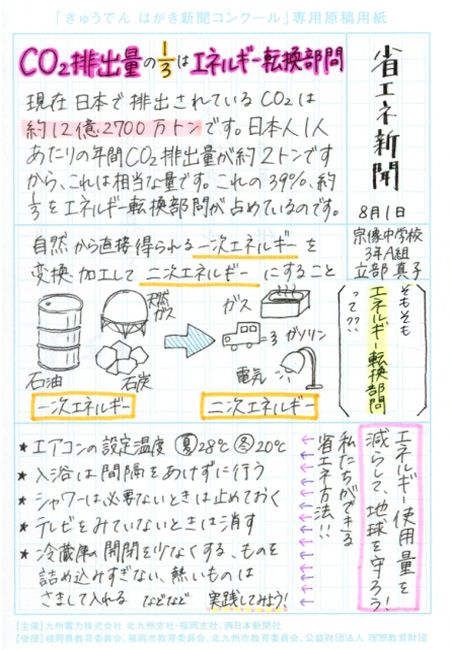 「きゅうでん はがき新聞コンクール」専用原稿用紙
CO₂排出量の1/3はエネルギー転換部問
省エネ新聞
8月1日
宗像中学校
3年A組
立部 真子
現在日本で排出されているCO₂は
約12億2700万トンです。日本人1人
あたりの年間CO₂排出量が約2トンです
から、これは相当な量です。これの39%、約
1/3をエネルギー転換部問が占めているのです。
そもそも
エネルギー転換部問
って??
自然から直接得られる一次エネルギーを
変換・加工して二次エネルギーにすること
石油
天然
ガス
石炭
一次エネルギー
ガス
ガソリン
電気
二次エネルギー
エネルギー使用量を
減らして、地球を守ろう!
私たちができる
省エネ方法!!
★エアコンの設定温度 夏28℃ 冬20℃
★入浴は間隔をあけずに行う
★シャワーは、必要ないときは止めておく
★テレビをみていないときは消す
★冷蔵庫の開閉を少なくする、ものを
詰め込みすぎない、熱いものは
さまして入れる などなど 実践してみよう!
【主催】九州電力株式会社 北九州支社・福岡支社、西日本新聞社
【後援】福岡県教育委員会、福岡市教育委員会、北九州市教育委員会、公益財団法人 理想教育財団